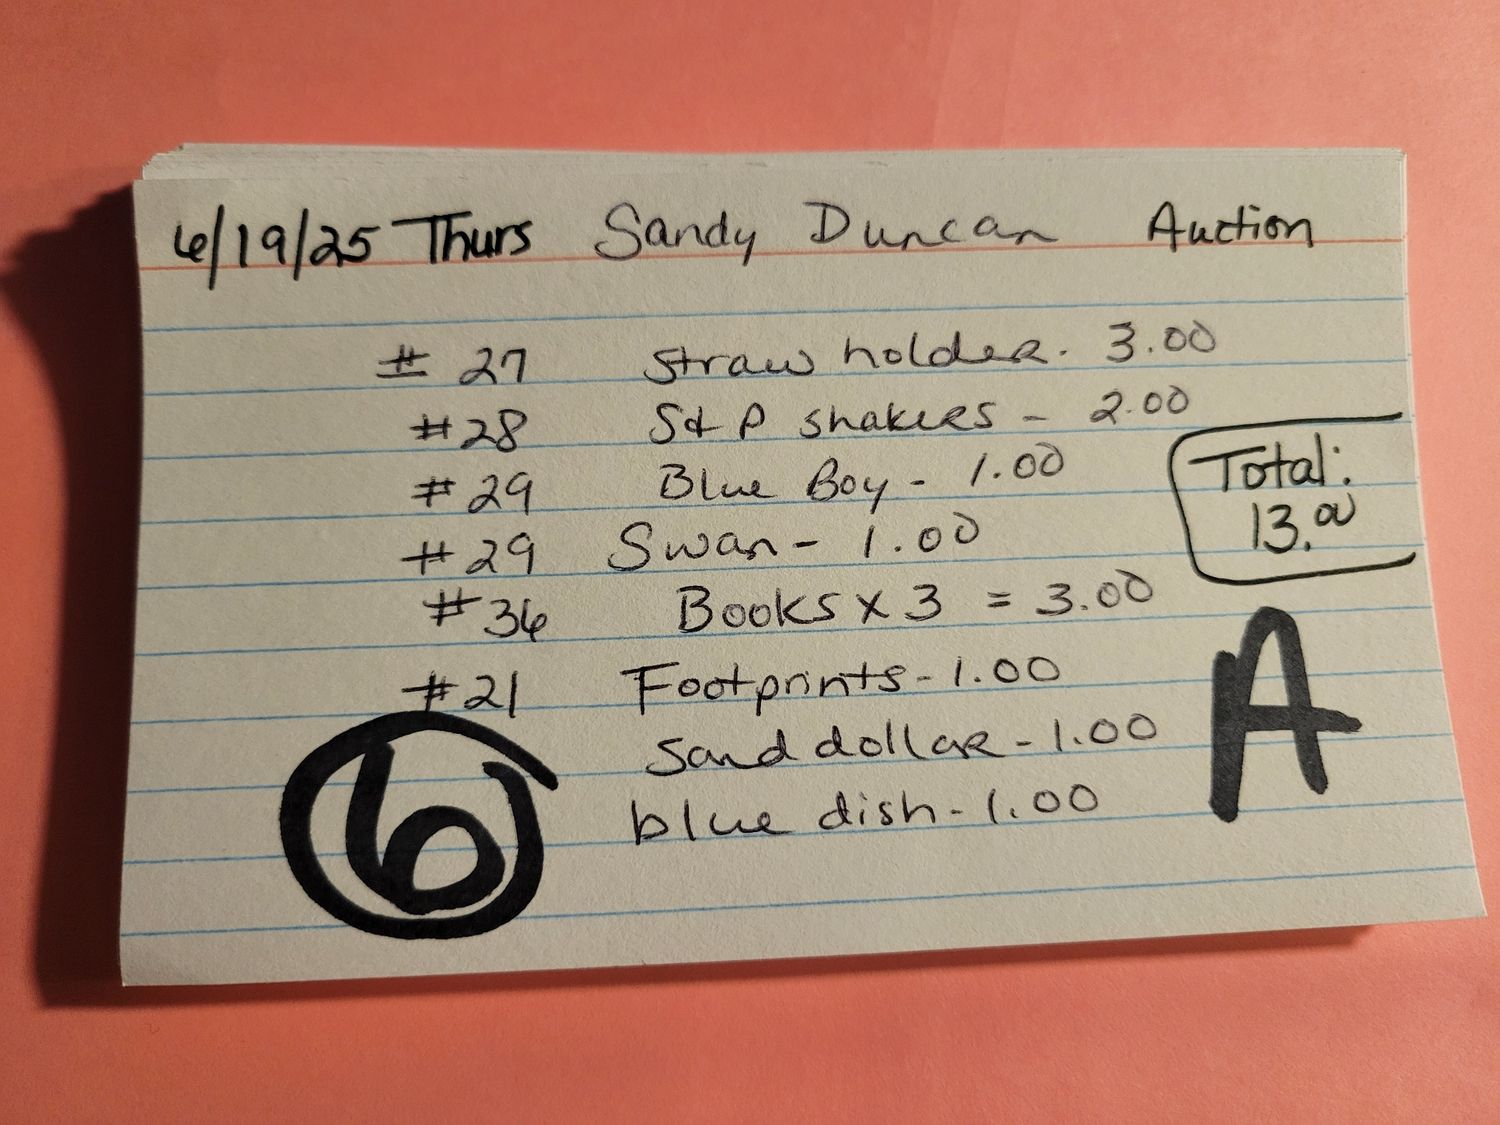 6/19/25 Thurs Sandy Duncan Auction
# 27 Straw holder. 3.00
#28 S&P shakers - 2.00
#29 Blue Boy - 1.00
Total:
13.00
#29 Swan - 1.00
#36 Books x 3 = 3.00
#21 Footprints - 1.00
Sand dollar - 1.00
blue dish - 1.00
6
A